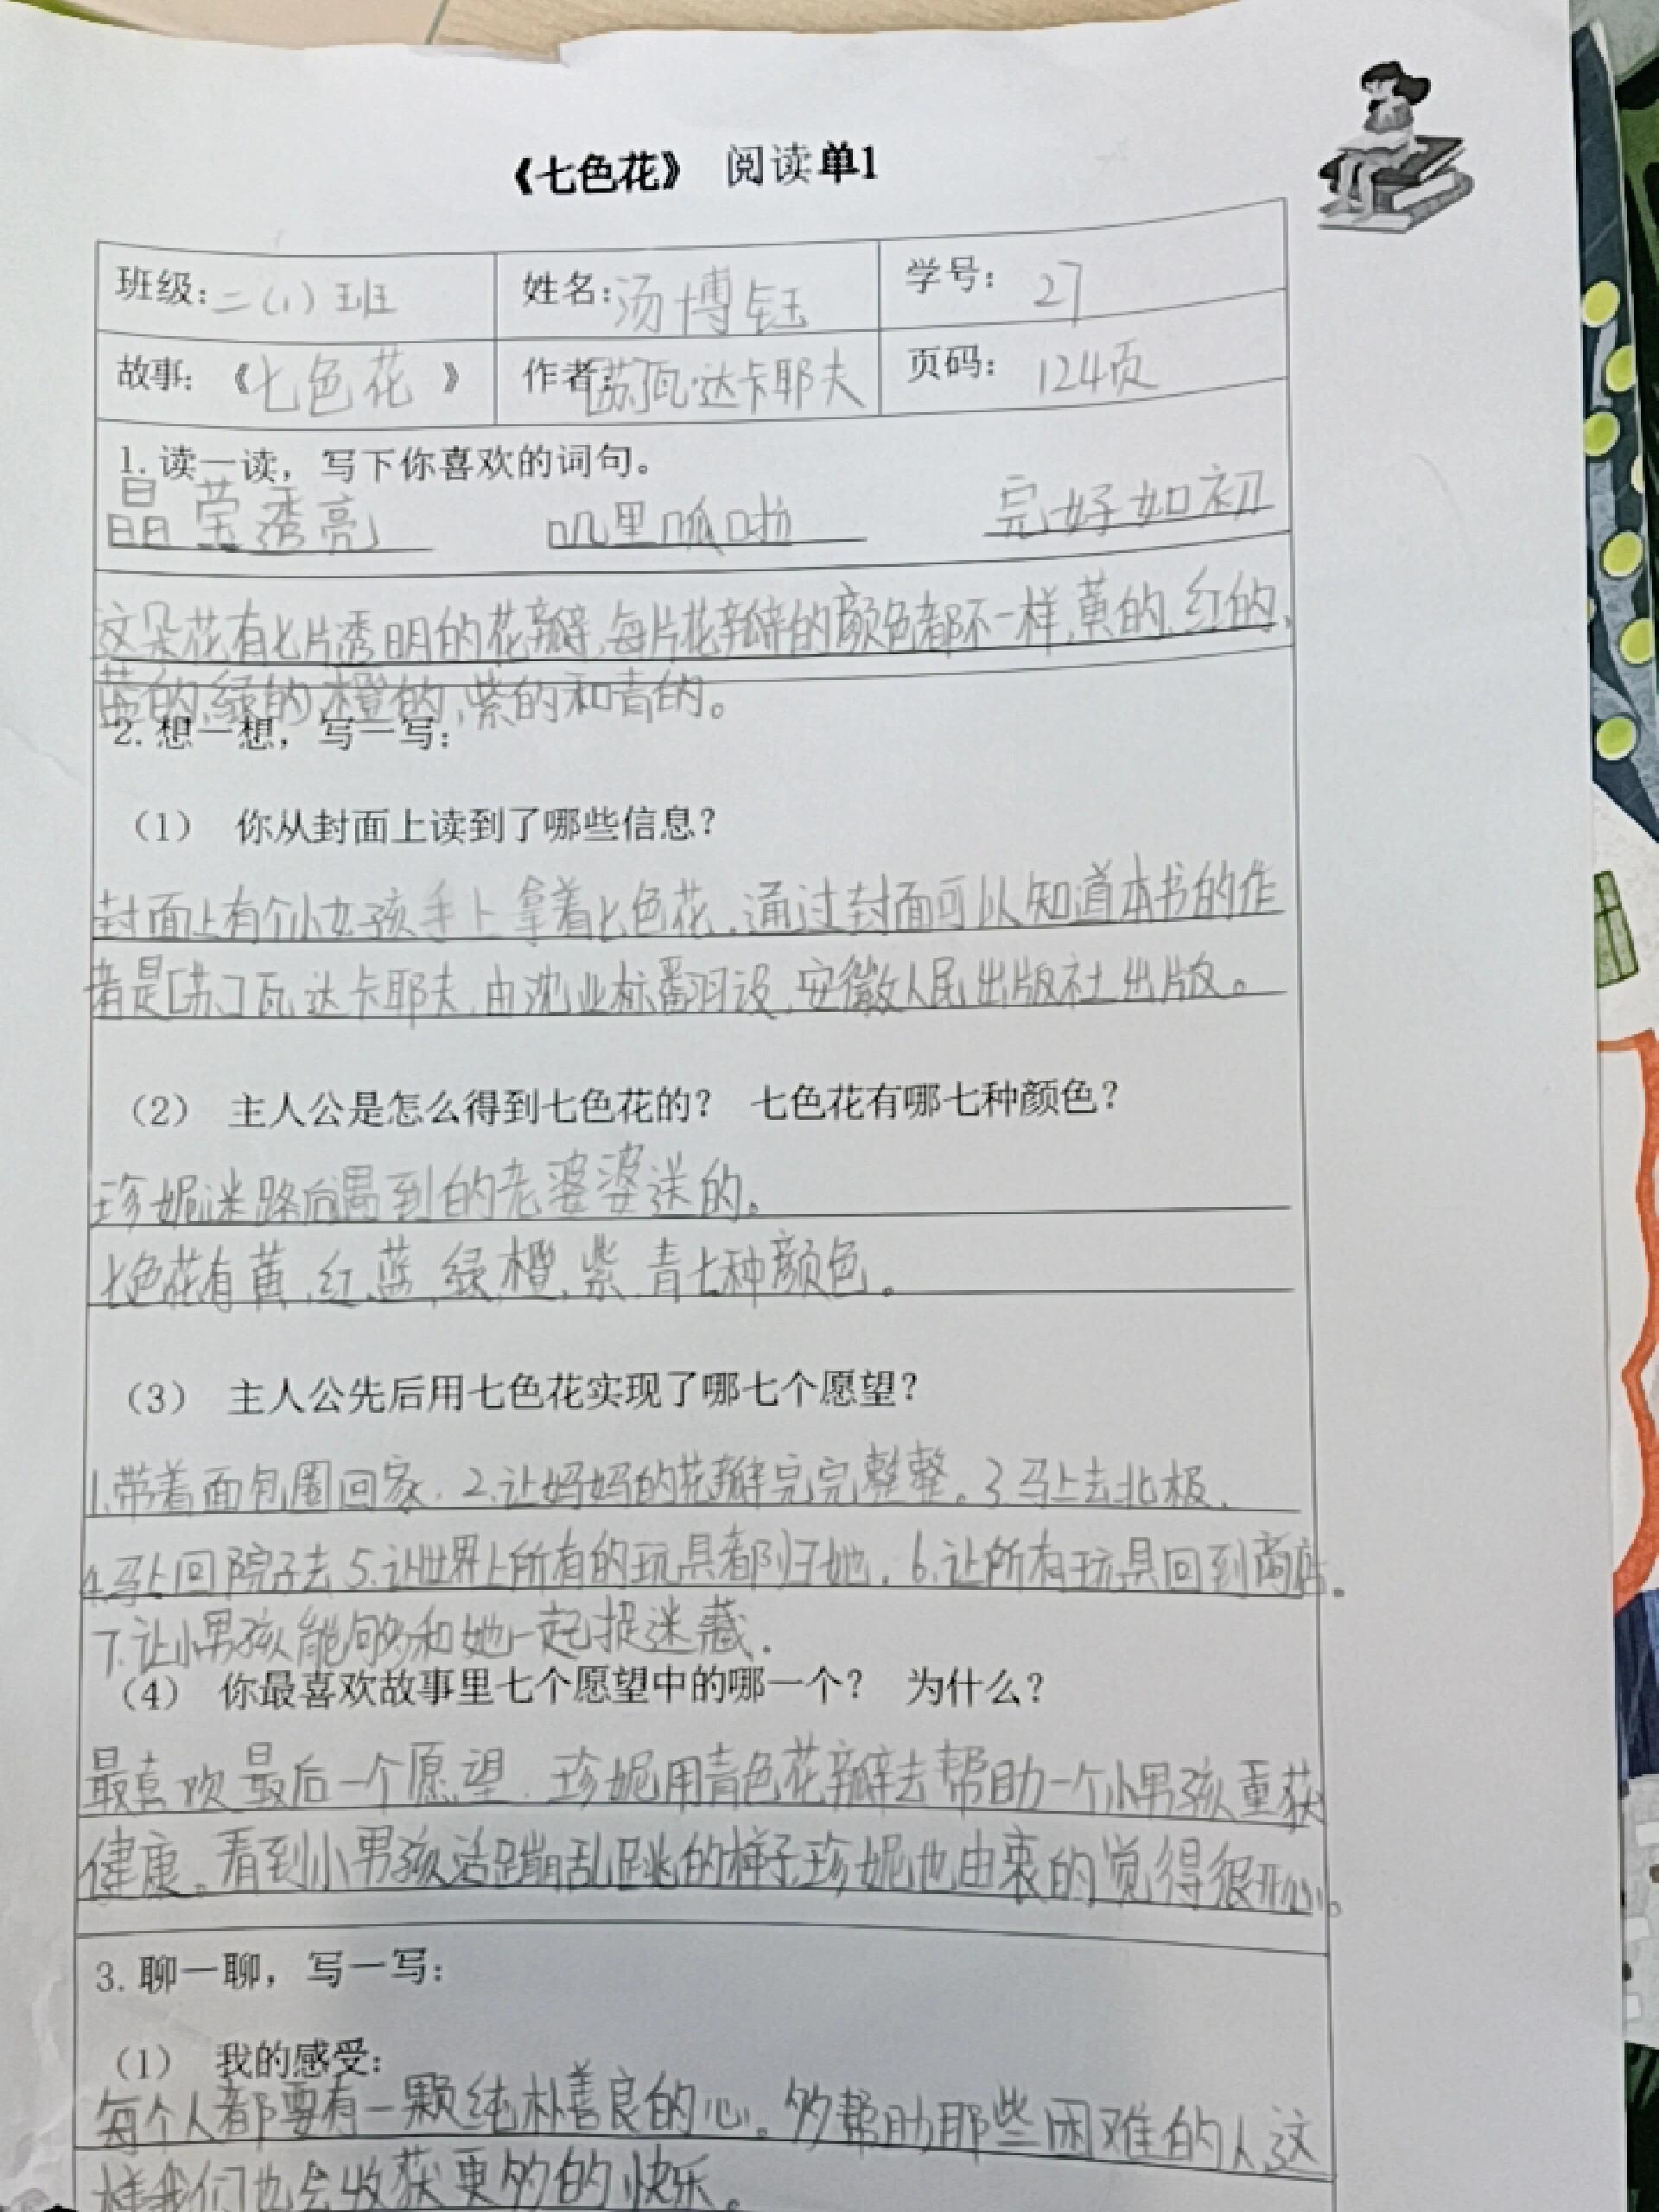 《七色花》 阅读单1
班级：二（1）班 姓名：汤博钰 学号：27
故事：《七色花》 作者：[苏]瓦·达卡耶夫 页码：124页
1. 读一读，写下你喜欢的词句。
晶莹透亮 叽里呱啦 完好如初
这朵花有七片透明的花瓣，每片花瓣的颜色都不一样，黄的、红的、
蓝的、绿的、橙的、紫的和青的。
2. 想一想，写一写：
（1） 你从封面上读到了哪些信息？
封面上有个小女孩手上拿着七色花，通过封面可以知道本书的作
者是[苏]瓦·达卡耶夫，由沈业标翻设，安徽人民出版社出版。
（2） 主人公是怎么得到七色花的？ 七色花有哪七种颜色？
珍妮迷路后遇到的老婆婆送的。
七色花有黄、红、蓝、绿、橙、紫、青七种颜色。
（3） 主人公先后用七色花实现了哪七个愿望？
1.带着面包圈回家。2.让妈妈的花瓣完完整整。3.马上去北极。
4.马上回院子去 5.让世界上所有的玩具都归她。6.让所有玩具回到商店。
7.让小男孩能够和她一起捉迷藏。
（4） 你最喜欢故事里七个愿望中的哪一个？ 为什么？
最喜欢最后一个愿望，珍妮用青色花瓣去帮助一个小男孩重获
健康。看到小男孩活蹦乱跳的样子，珍妮也由衷的觉得很开心。
3. 聊一聊，写一写：
（1） 我的感受：
每个人都要有一颗纯朴善良的心。多帮助那些困难的人这
样我们也会收获更多的快乐。